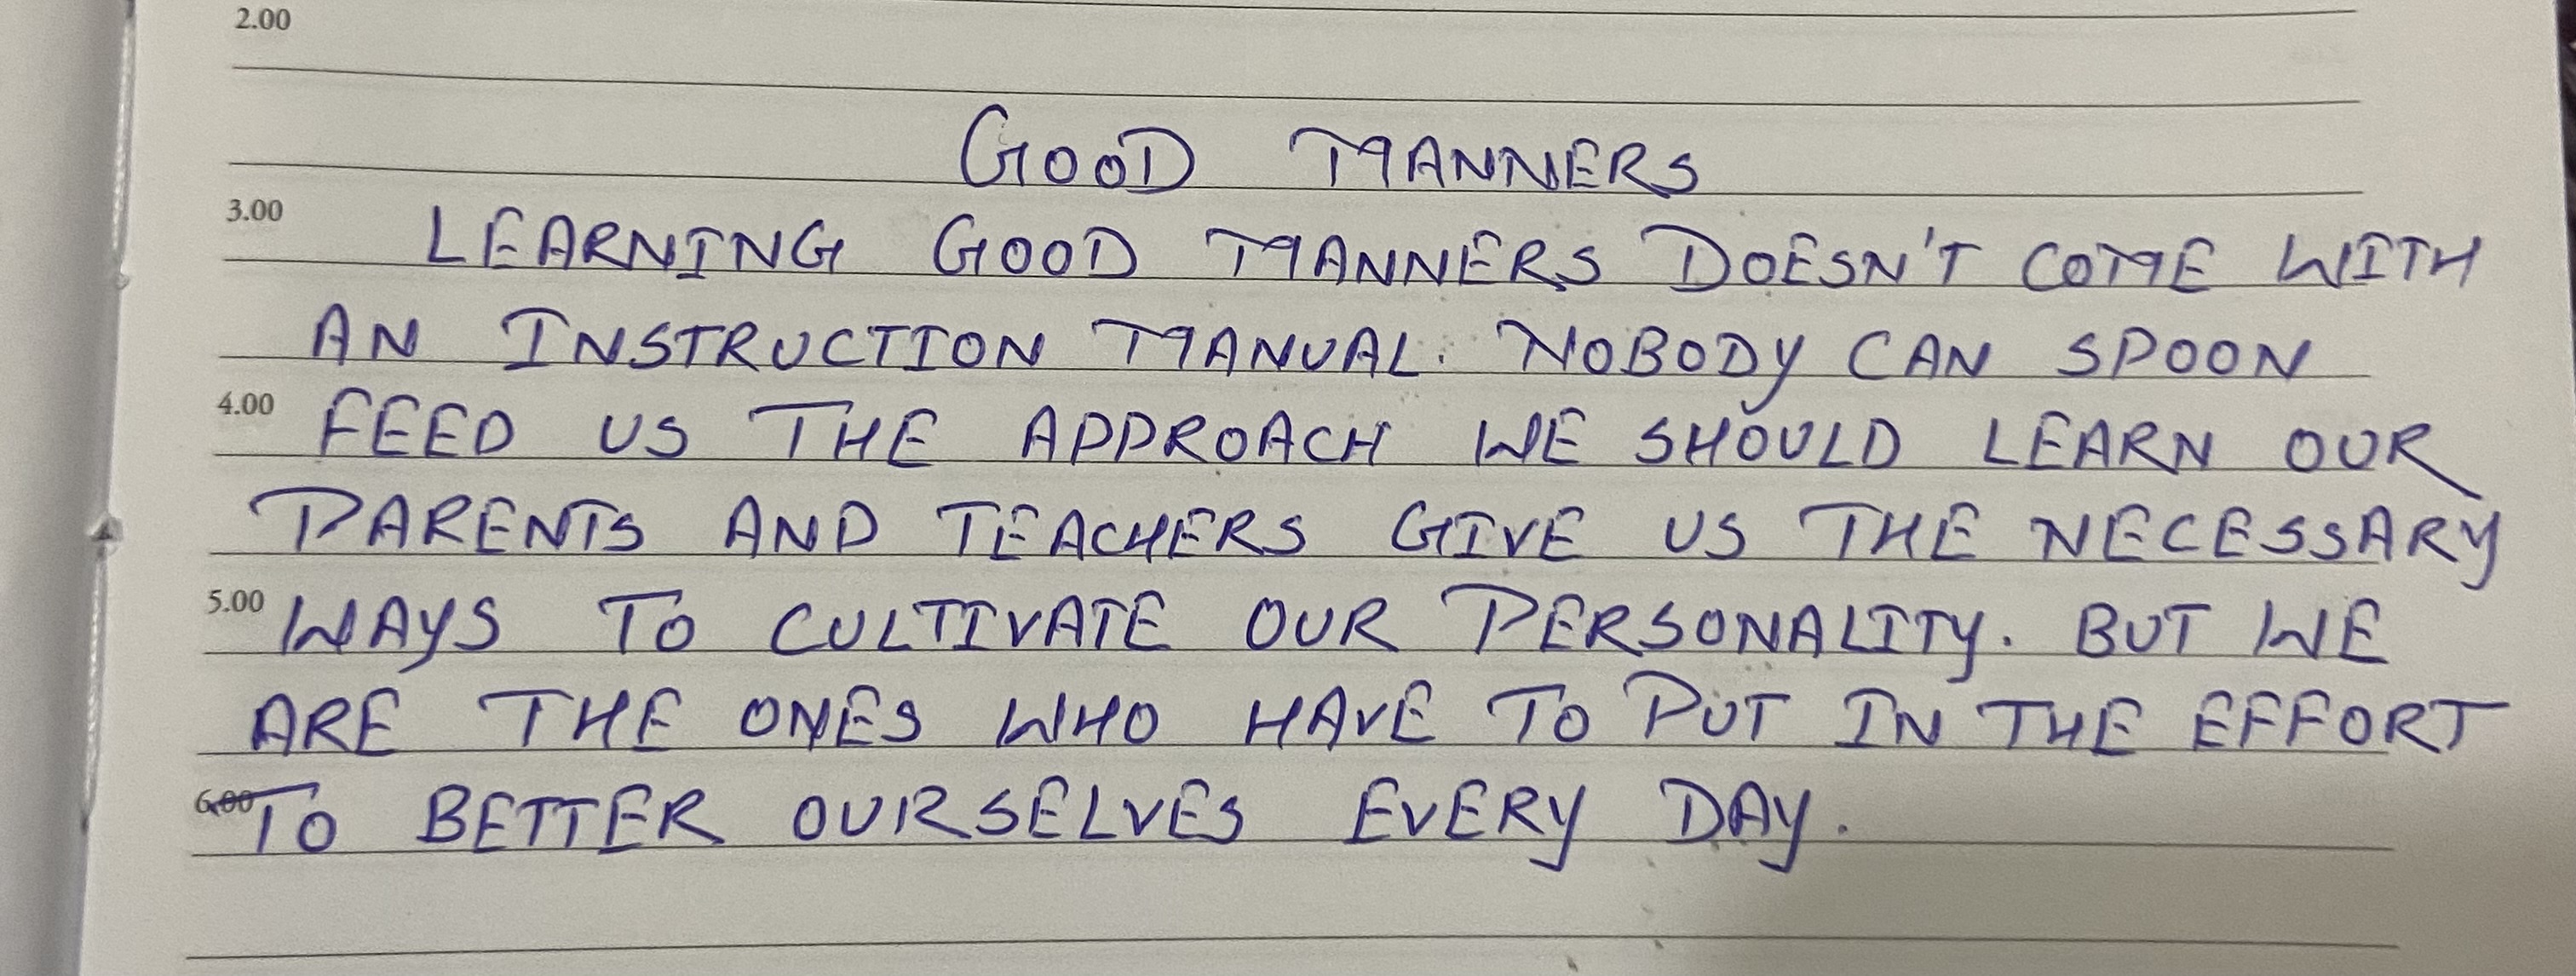 2.00
GOOD MANNERS
3.00
LEARNING GOOD MANNERS DOESN'T COME WITH
AN INSTRUCTION MANUAL. NOBODY CAN SPOON
4.00 FEED US THE APPROACH WE SHOULD LEARN OUR
PARENTS AND TEACHERS GIVE US THE NECESSARY
5.00 WAYS TO CULTIVATE OUR PERSONALITY. BUT WE
ARE THE ONES WHO HAVE TO PUT IN THE EFFORT
6.00 TO BETTER OURSELVES EVERY DAY.